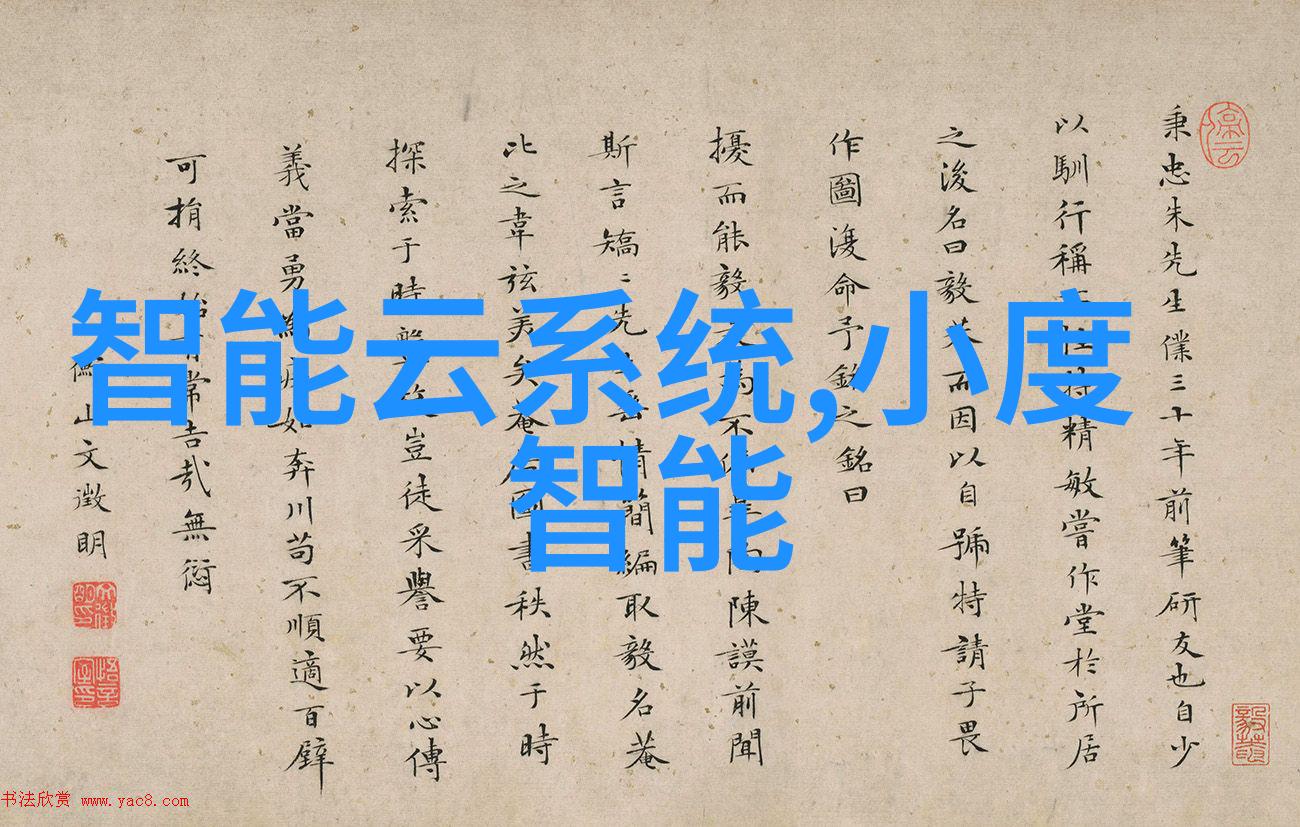 智能云系统,小度
智能
秉忠朱先生僕三十年前筆研友也自少
以馴行稱 特精敏嘗作堂於所居
之後名曰毅 而因以自號特請子畏
作圖復命予銘之銘曰
擾而能毅 不 陳謨前聞
斯言矯〻先 情簡編取毅名菴
比之韋弦美矣菴居圖書秩然于時
探索于時 豈徒采譽要以心傳
義當勇為 如奔川苟不順適百躄
可捐終始有常吉哉無愆
衡山文徵明
书法欣赏 www.yac8.com